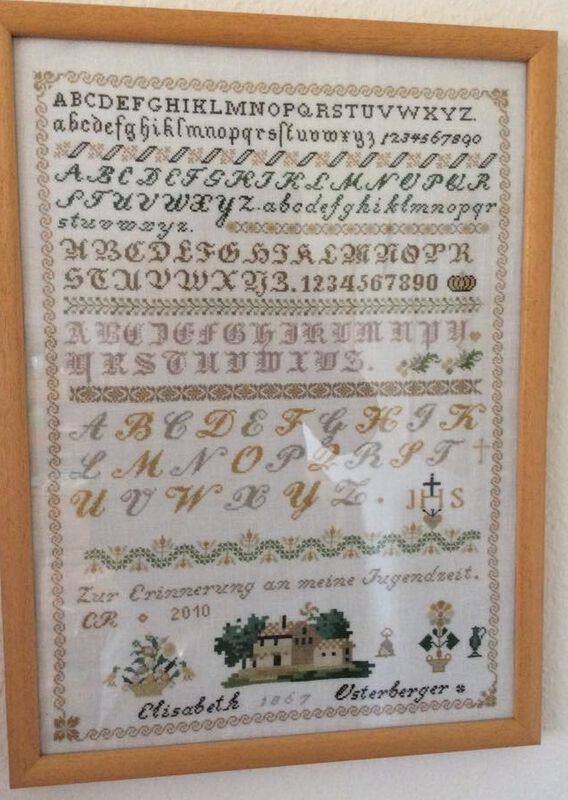 ABCDEFGHIKLMNOPQRSTUVWXYZ.
abcdefghiklmnopqrsſtuvwxyz 1234567890
ABCDEFGHIKLMNOPQR
STUVWXYZ.abcdefghiklmnopqr
stuvwxyz.
ABCDEFGHIKLMNOPR
STUVWXYZ.1234567890
ABCDEFGHIKLMN
RSTUVWX
A B C D E F G H I K
L M N O P Q R S T
U V W X Y Z.
JHS
Zur Erinnerung an meine Jugendzeit.
CR 2010
Elisabeth 1867 Osterberger